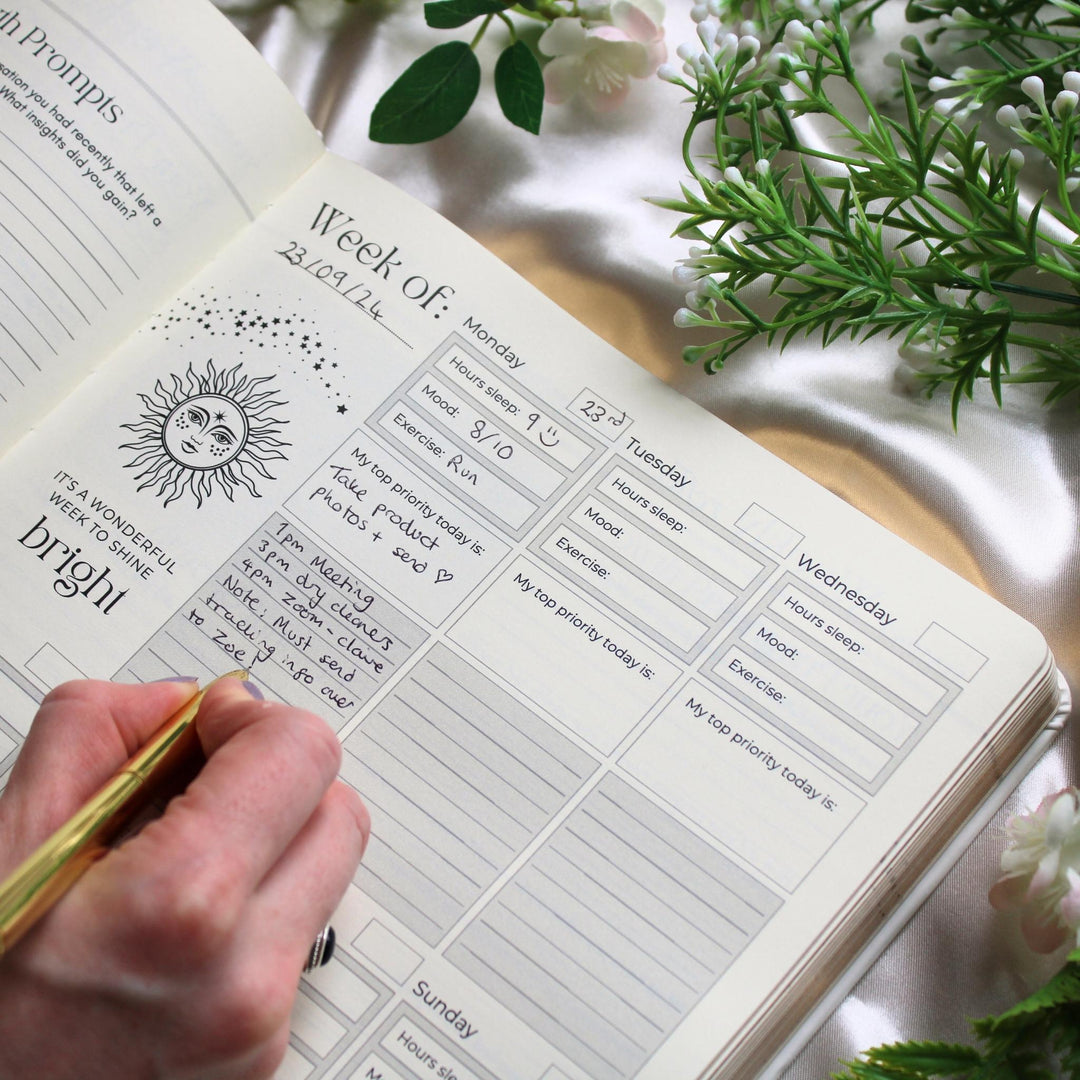 th Prompts
sation you had recently that left a
What insights did you gain?
Week of:
23/09/24
IT'S A WONDERFUL
WEEK TO SHINE
bright
Monday
23rd
Hours sleep: 9
Mood: 8/10
Exercise: Run
My top priority today is:
Take product
photos + send ♡
1pm Meeting
3pm dry cleaners
4pm zoom - claire
Note: Must send
tracking info over
to Zoe!
Tuesday
Hours sleep:
Mood:
Exercise:
My top priority today is:
Wednesday
Hours sleep:
Mood:
Exercise:
My top priority today is:
Sunday
Hours slee